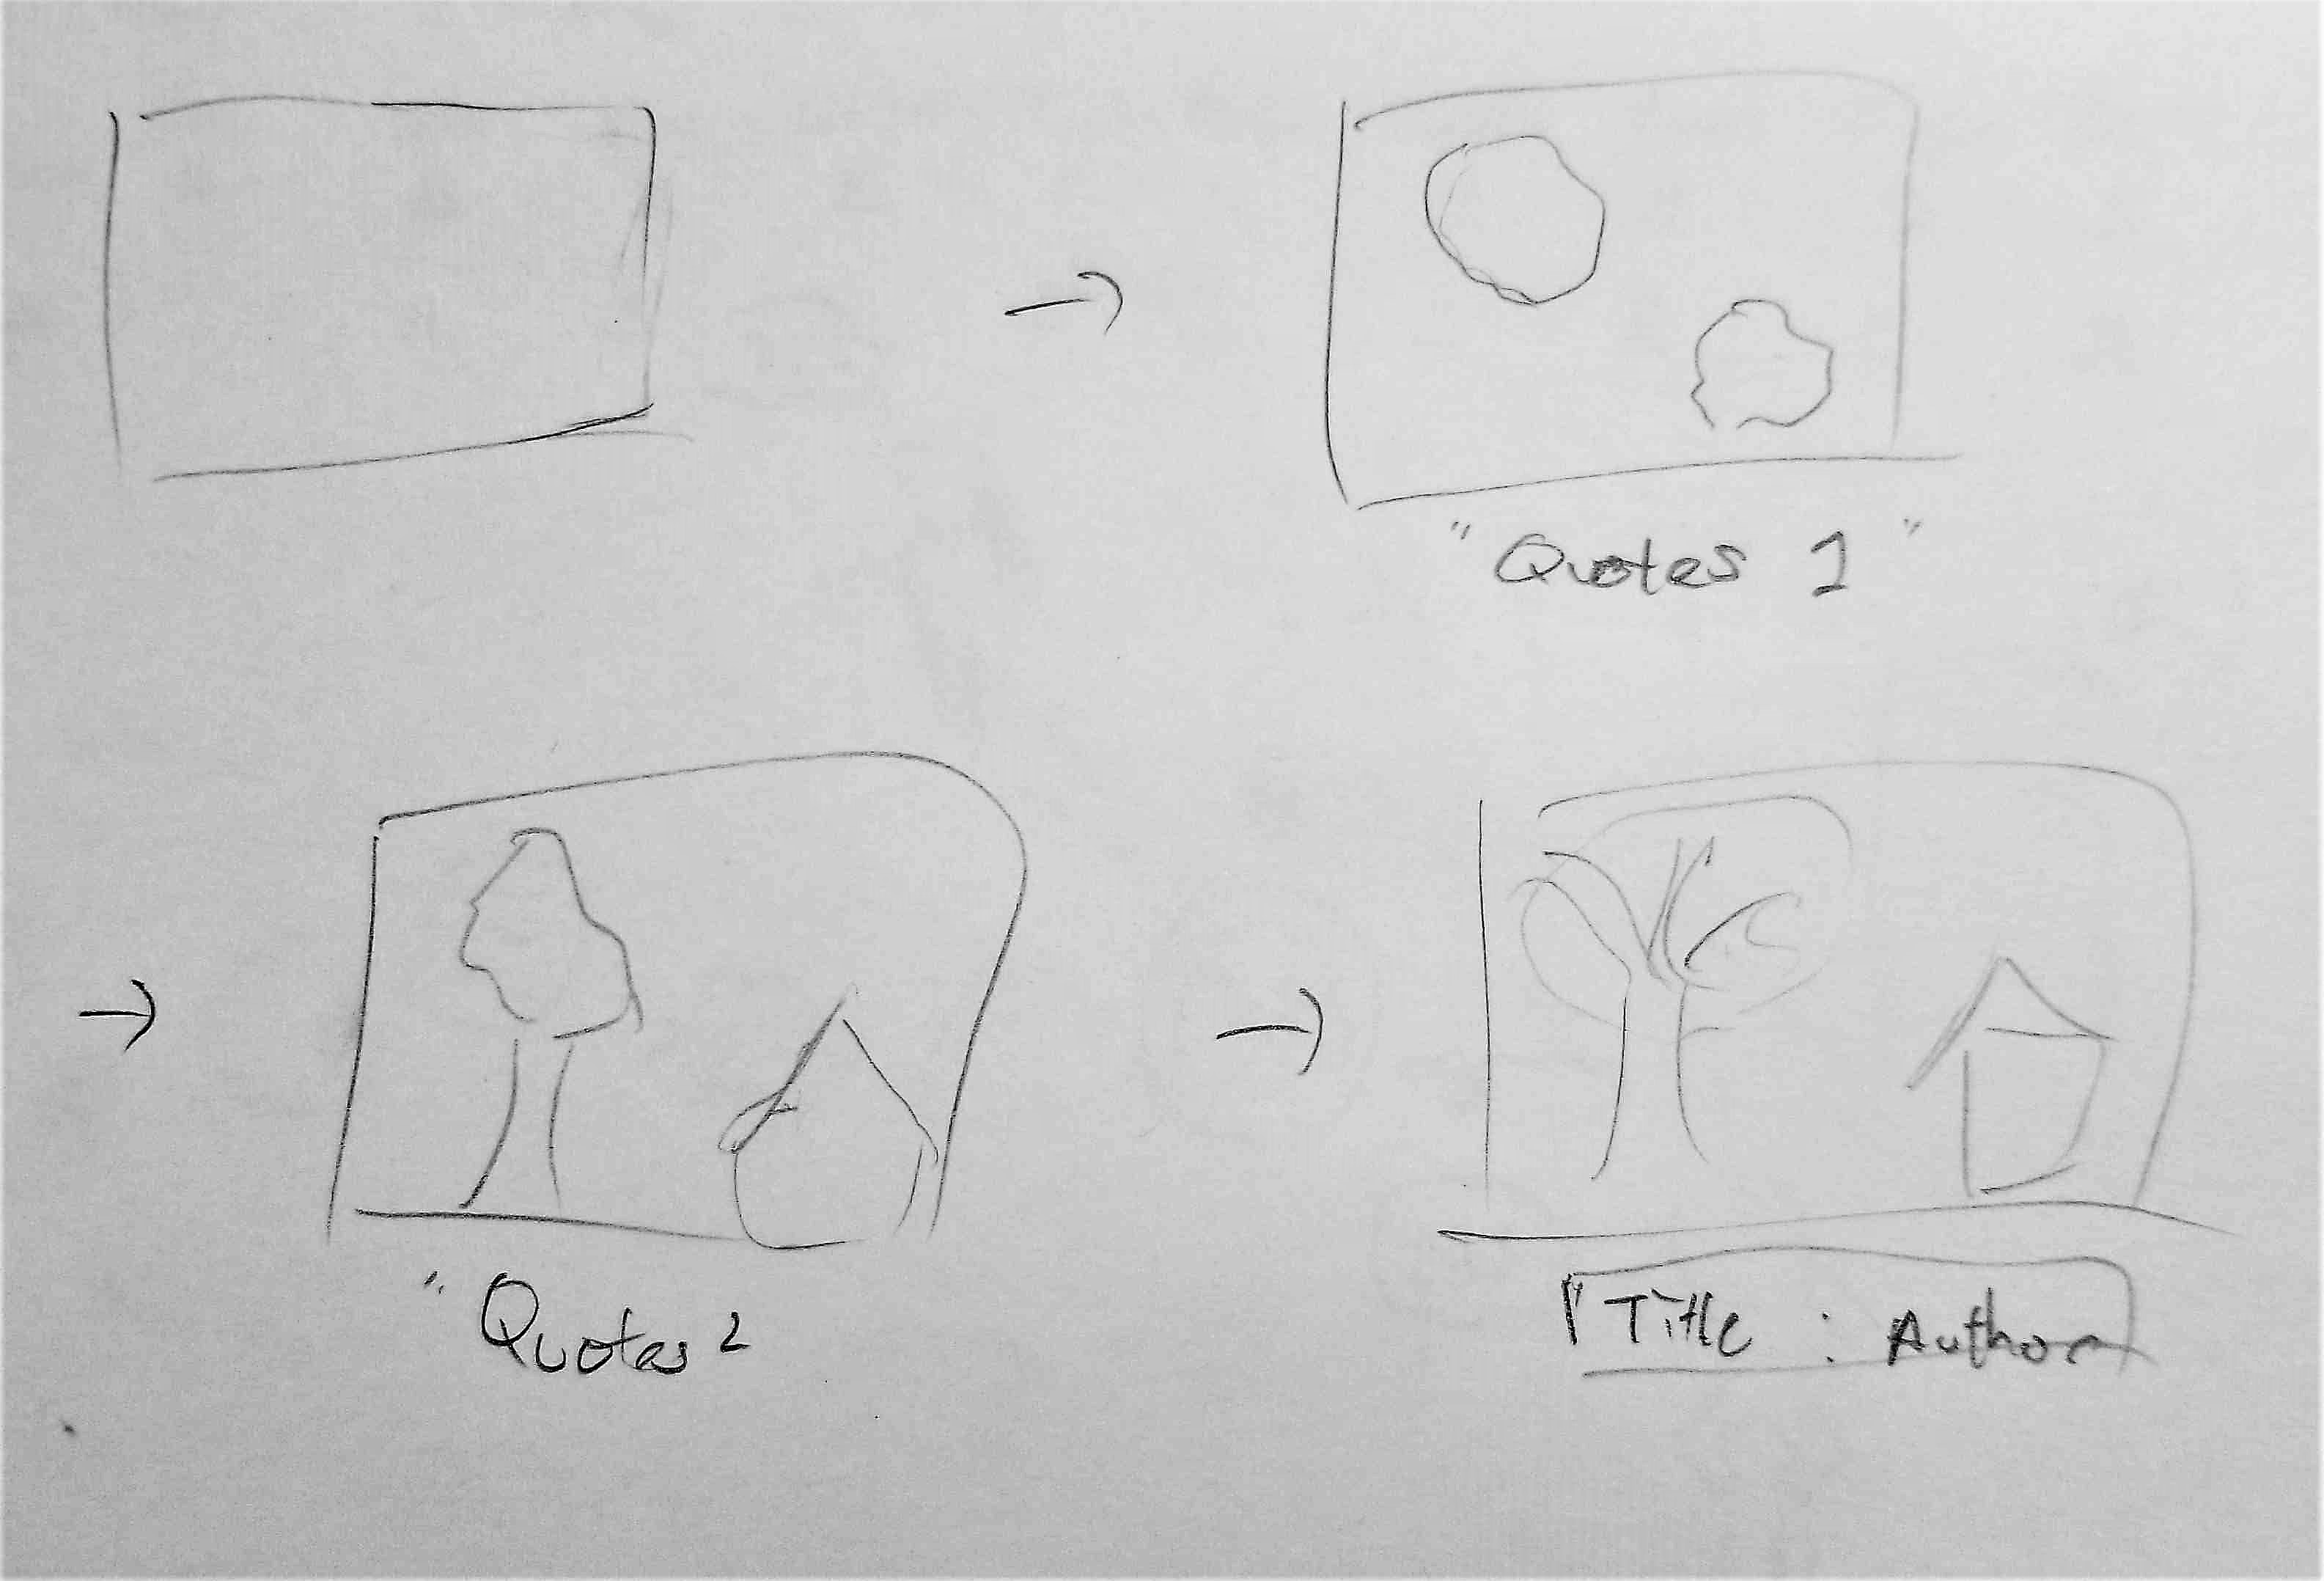 "Quotes 1"
"Quotes 2
"Title : Author